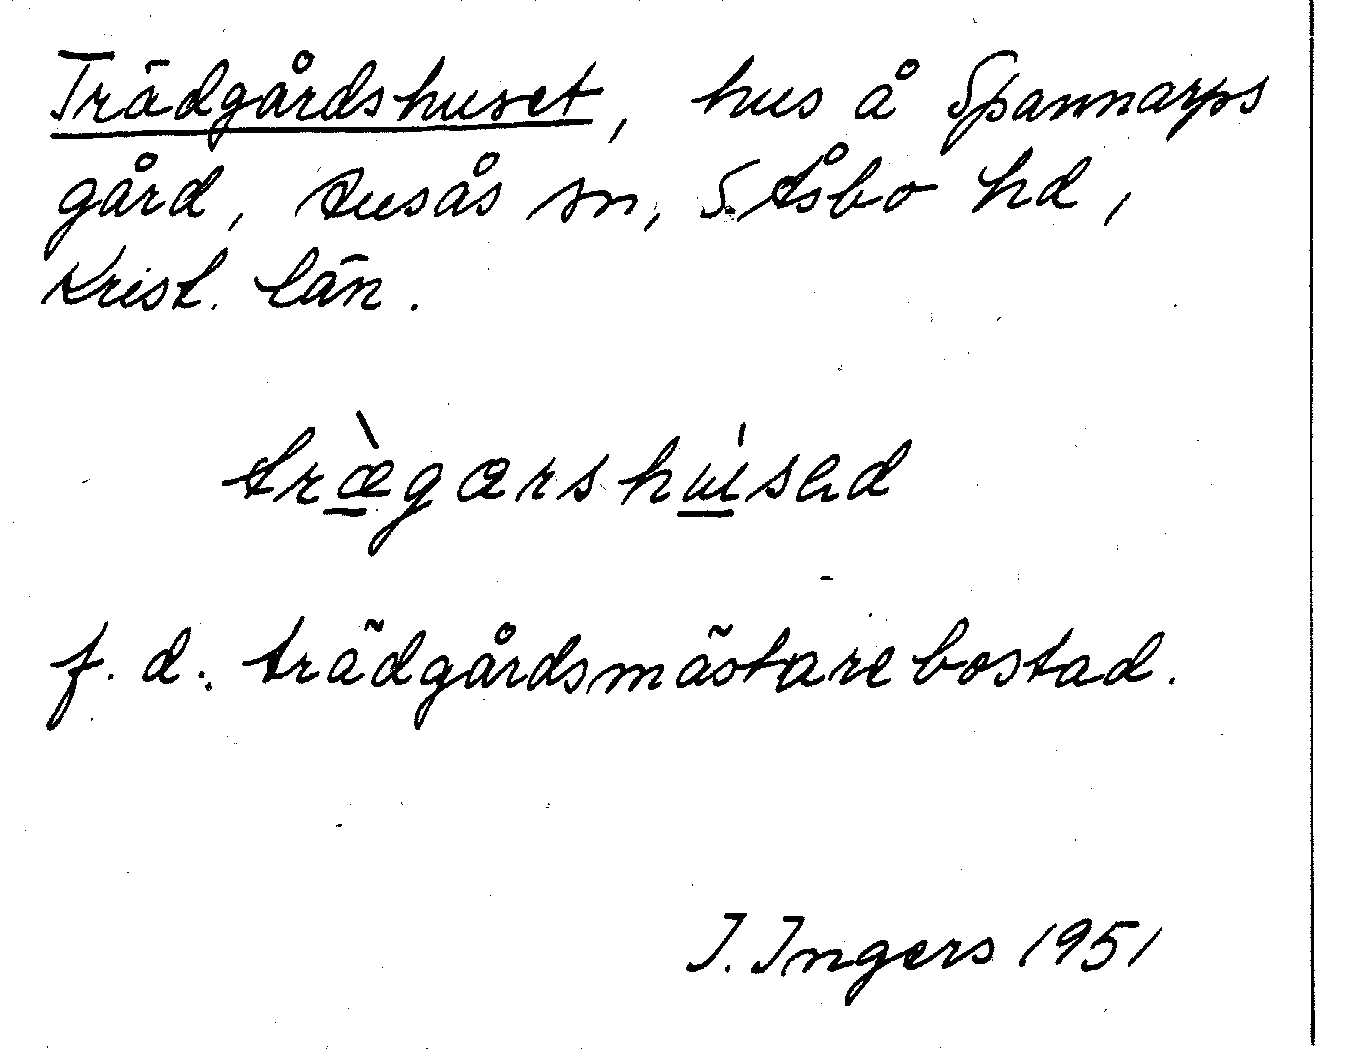 Trädgårdshuset, hus å Spannarps
gård, Ausås sn, S. Åsbo hd,
Krist. län.
træ̀garshúsəd
f. d. trädgårdsmästarebostad.
I. Ingers 1951